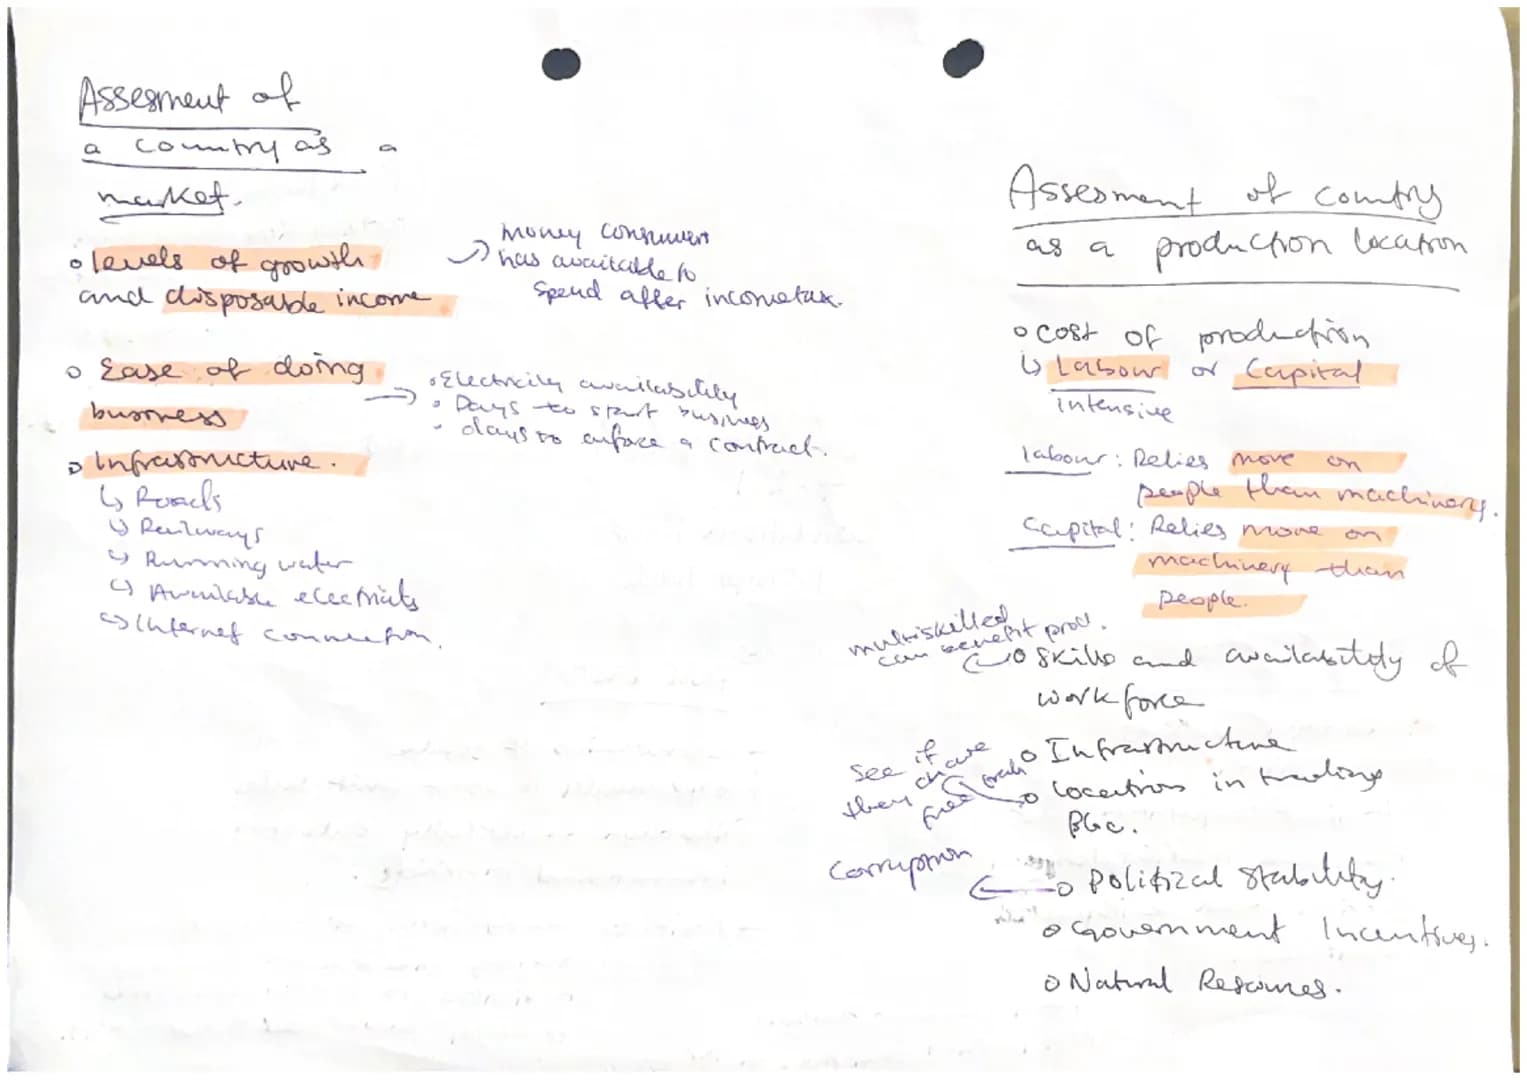 Assesment of
a country as a
market.
o levels of growth
and disposable income
→ money consumers
has available to
spend after income tax.
o Ease of doing
business
→ • Electricity availability
• Days to start business
• days to enforce a contract.
o Infrastructure.
↳ Roads
↳ Railways
↳ Running water
↳ Available electricity
↳ Internet connection.
Assesment of country
as a production location
o cost of production
↳ Labour or Capital
intensive
labour: Relies more on
people than machinery.
Capital: Relies more on
machinery than
people.
multiskilled
can benefit prod.
o Skills and availability of
workforce
o Infrastructure
see if
they are
free
o location in trading
Bloc.
Corruption
o Political stability.
o Government Incentives.
o Natural Resources.